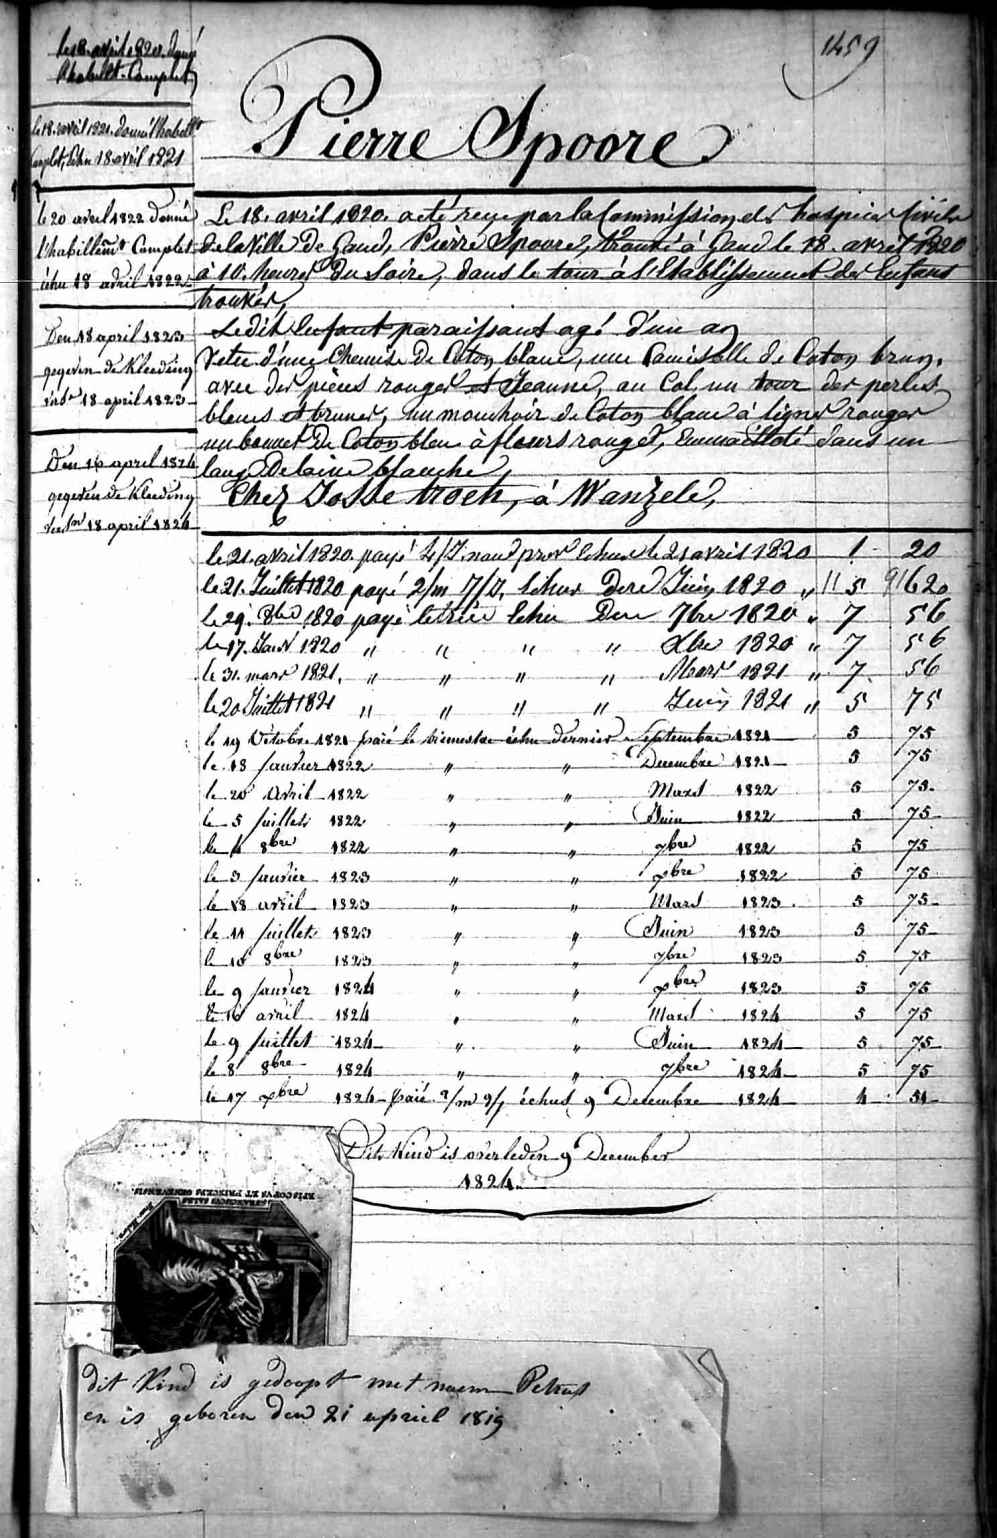 1459
Pierre Spoore
le 18 avril 1820 donné
l'habillt Complet
le 18 avril 1821 donné l'habillt
Complet, échu 18 avril 1821
le 20 avril 1822 donné
l'habillemt Complet
échu 18 avril 1822
Den 18 april 1823
gegeven de Kleeding
18 april 1823
Den 16 april 1824
gegeven de Kleeding
18 april 1824
Le 18. avril 1820. acté reçu par la Commission des hospices Civils
de la Ville de Gand, Pierre Spoore, trouvé à Gand le 18. avril 1820
à 10. heures du Soire, dans le tour à l'Etablissement des Enfans
trouvés,
Le dit Enfant paraissant agé d'un an
Vetu d'une Chemise de Coton blanc, une Camisolle de Coton brun,
avec des pièces rouges et Jeaune, au Col, un tour des perles
bleues et brunes, un mouchoir de Coton blanc à lignes rouges
un bonnet de Coton bleu à fleurs rouges, Emmailloté dans un
lange de laine blanche,
Chez Josse troch, à Wanzele,
le 21. avril 1820. payé échus le 21 avril 1820 1 20
le 21. Juillet 1820 payé 2/m échus Juin 1820 " 5 91620
le 29. 8bre 1820 payé échu 7bre 1820 " 7 56
le 17. Janv 1820 " " " " Xbre 1820 " 7 56
le 31. mars 1821, " " " " Mars 1821 " 7 56
le 20 Juillet 1821 " " " " Juin 1821 " 5 75
le 19 Octobre 1821 paié le trimestre échu dernier Septembre 1821 5 75
le 18 Janvier 1822 " " Decembre 1821 5 75
le 20 Avril 1822 " " Mars 1822 5 75
le 5 Juillet 1822 " " Juin 1822 5 75
le 4 8bre 1822 " " 7bre 1822 5 75
le 3 Janvier 1823 " " xbre 1822 5 75
le 18 avril 1823 " " Mars 1823 5 75
le 11 Juillet 1823 " " Juin 1823 5 75
le 10 8bre 1823 " " 7bre 1823 5 75
le 9 Janvier 1824 " " xbre 1823 5 75
le 16 avril 1824 " " Mars 1824 5 75
le 9 Juillet 1824 " " Juin 1824 5 75
le 8 8bre 1824 " " 7bre 1824 5 75
le 17 xbre 1824 paié 2/m 9/j échus 9 Decembre 1824 4 51
Dit Kind is overleden 9 December
1824.
FRANCISCUS SALES
EPISCOPUS ET PRINCEPS GENEVENSIS.
dit Kind is gedoopt met naem Petrus
en is geboren den 21 april 1819